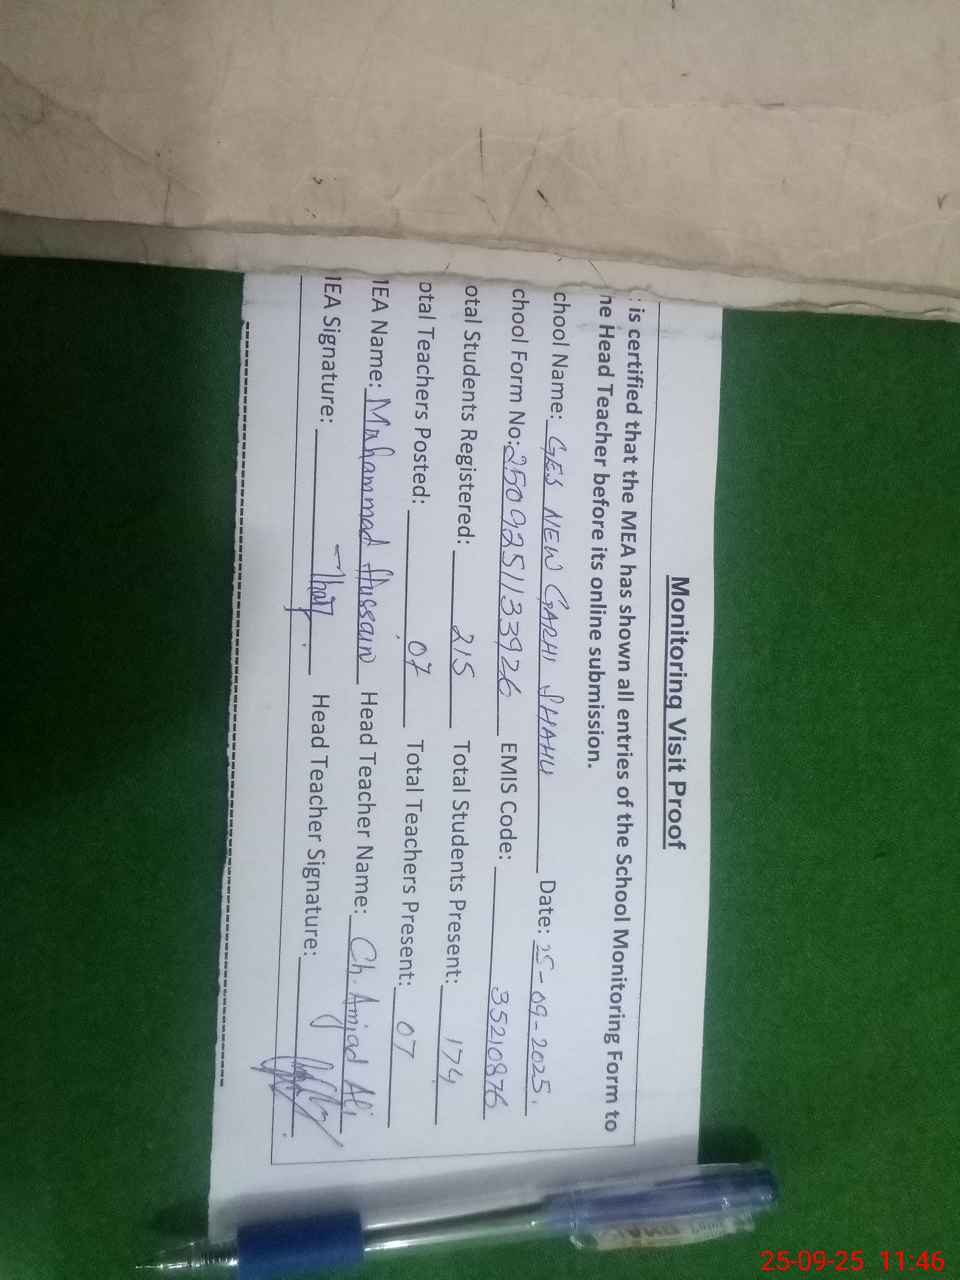 Monitoring Visit Proof
: is certified that the MEA has shown all entries of the School Monitoring Form to
he Head Teacher before its online submission.
chool Name: GES NEW GARHI SHAHU Date: 25-09-2025.
chool Form No: 2509251133926 EMIS Code: 35210876
otal Students Registered: 215 Total Students Present: 174
otal Teachers Posted: 07 Total Teachers Present: 07
IEA Name: Muhammad Hussain Head Teacher Name: Ch. Amjad Ali
IEA Signature: Head Teacher Signature:
25-09-25 11:46